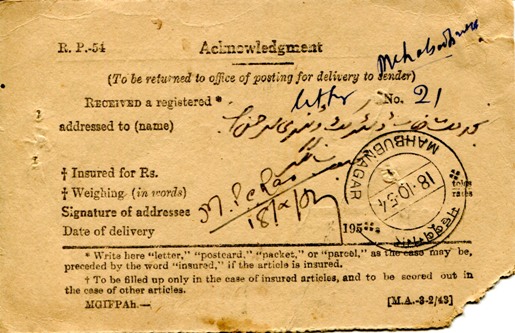 R. P.-54
Acknowledgment
(To be returned to office of posting for delivery to sender)
RECEIVED a registered * letter No. 21
addressed to (name)
† Insured for Rs.
† Weighing (in words) tolas
rates
Signature of addressee
Date of delivery 18/X/54 195
MAHBUBNAGAR
18.10.54
* Write here "letter," "postcard," "packet," or "parcel," as the case may be,
preceded by the word "insured," if the article is insured.
† To be filled up only in the case of insured articles, and to be scored out in
the case of other articles.
MGIFPAh.— [M.A.-3-2/43]